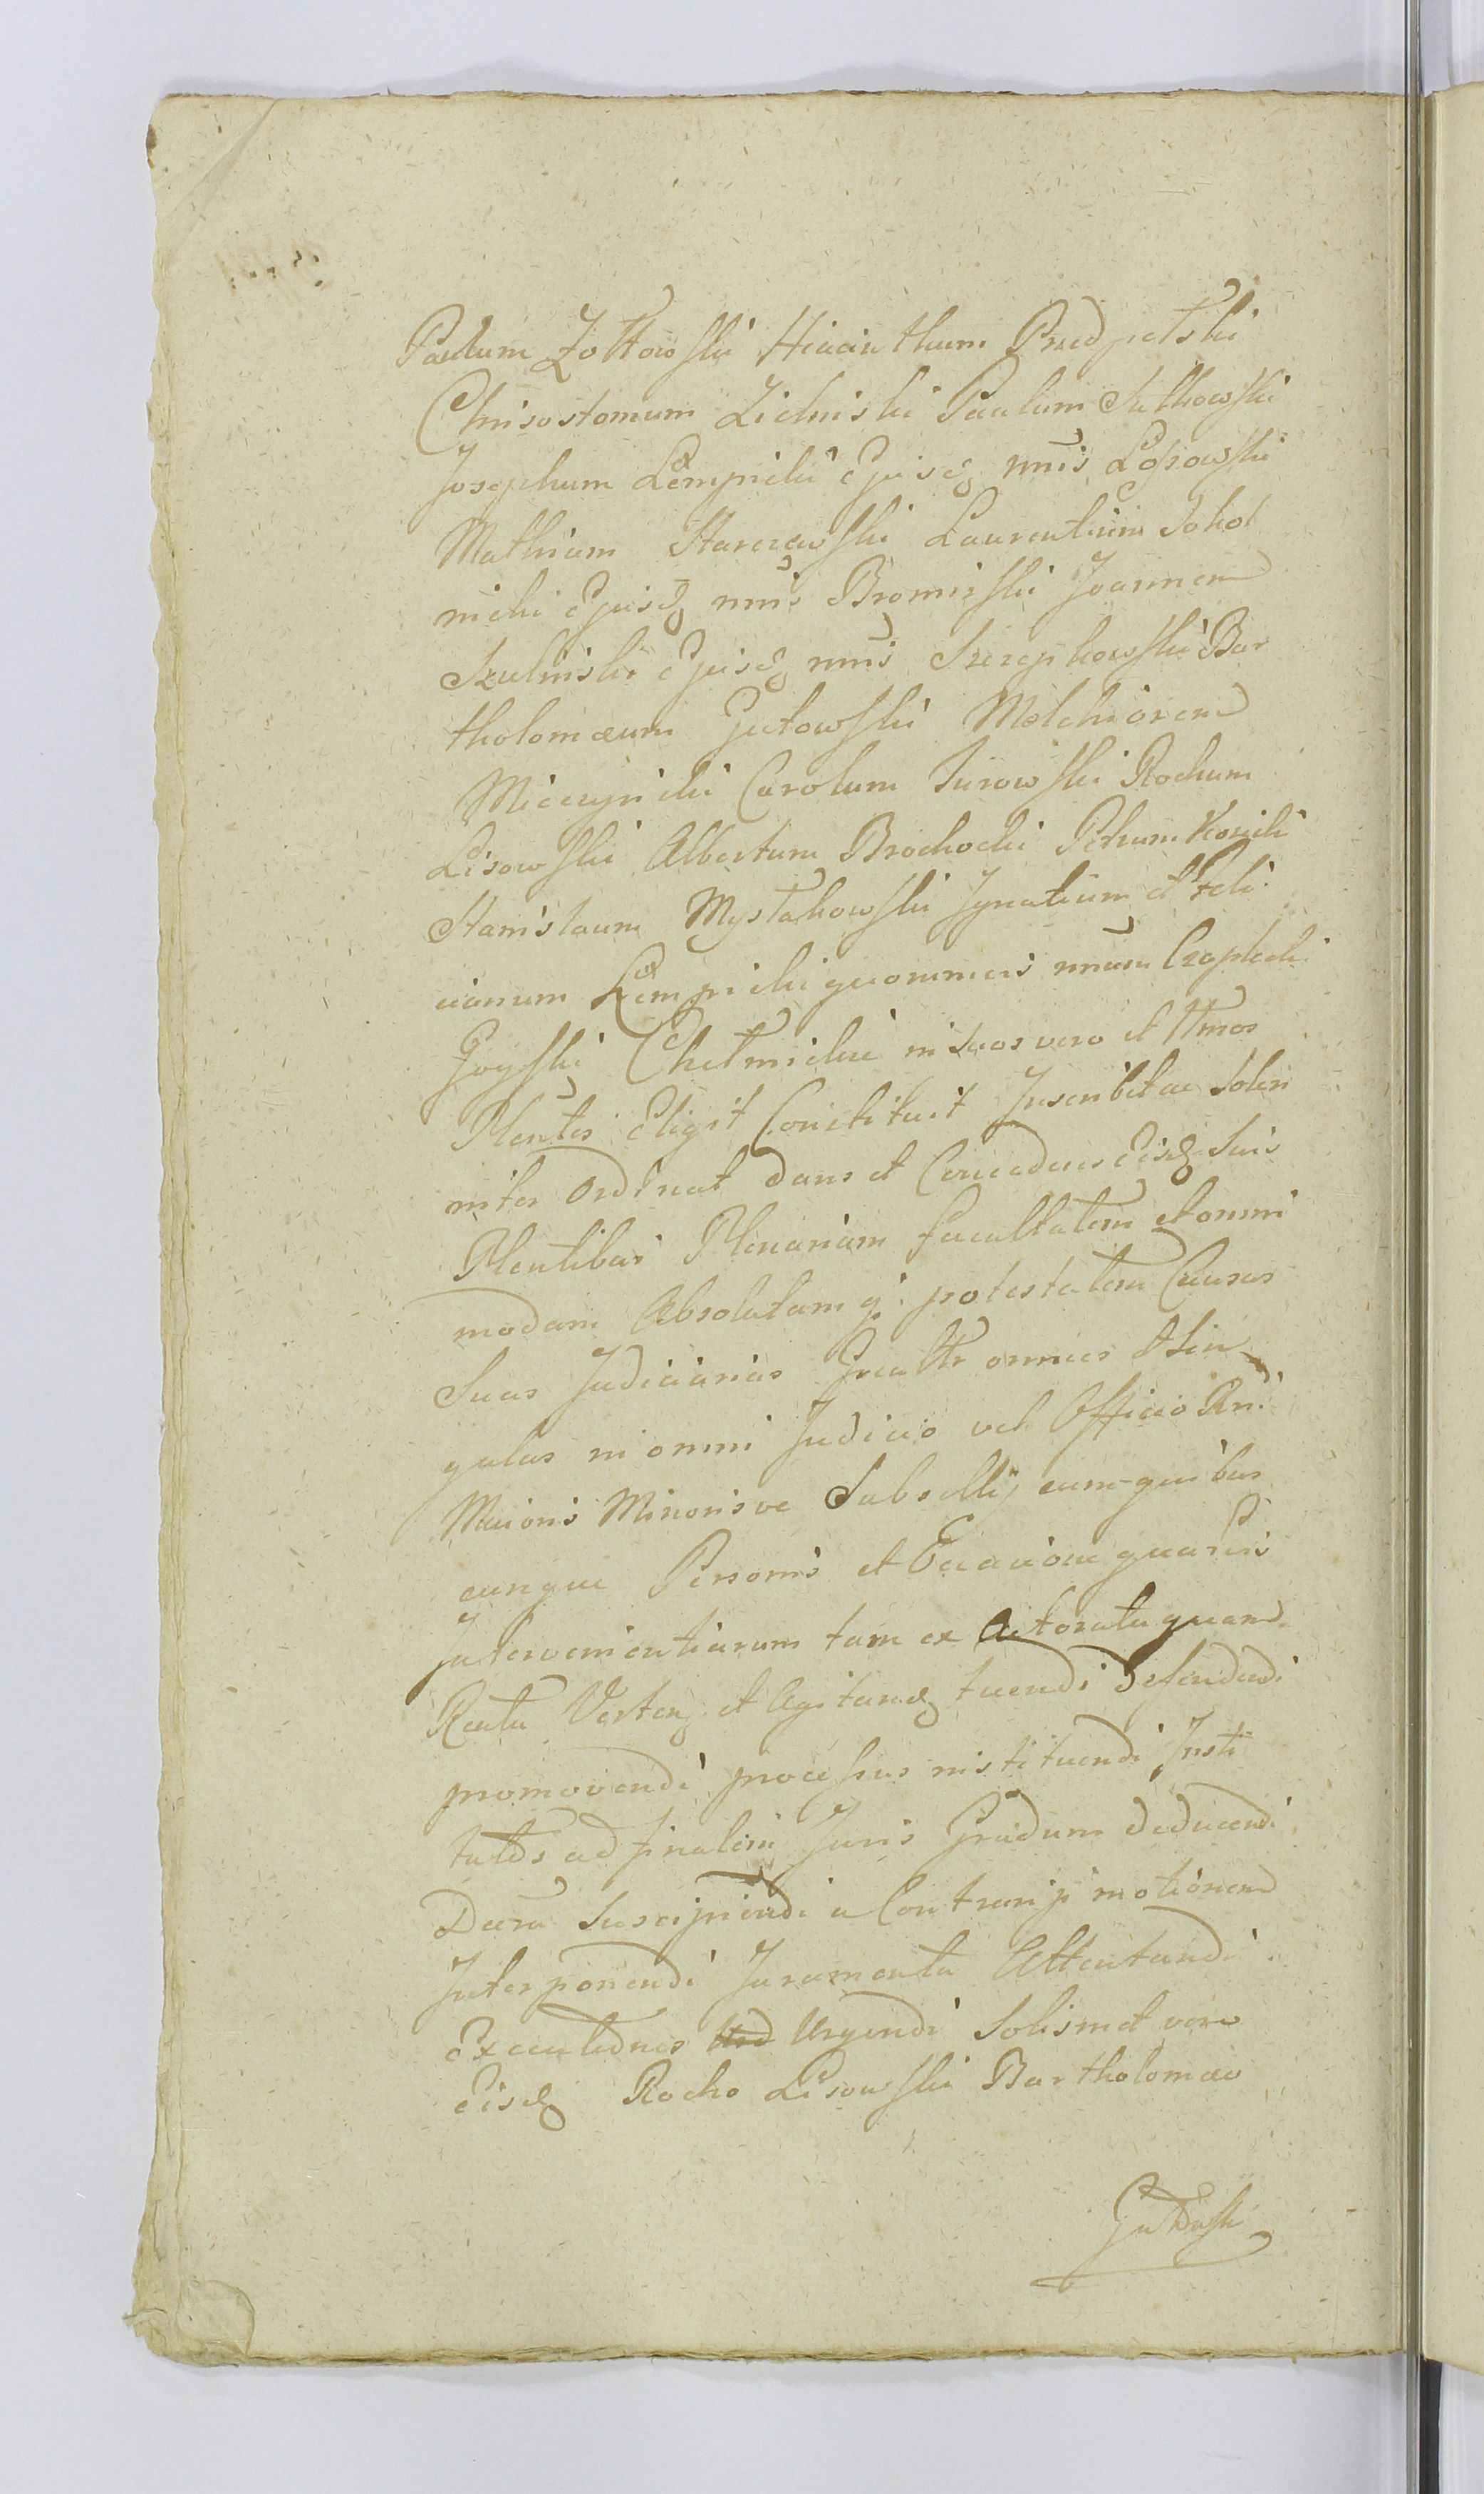 Paulum Żółtowski Hiacinthum Przedpełski
Chrisostomum Zieliński Paulum Sutkowski
Josephum Łempicki Ejusd nnis Łosowski
Mathiam Starczewski Laurentium Sokol
nicki Ejusd nnis Bromirski Joannem
Szulmiski Ejusd nnis Szczepkowski Bar
tholomæum Gutowski Melchiorem
Miecznicki Carolum Turowski Rochum
Lisowski Albertum Brochocki Petrum Kozicki
Stanislaum Mystakowski Ignatium et Feli
cianum Łempicki quorummeis nnum Czaplicki
Goyski Chełmicki in suos vero et ttmos
Plentes Eligit Constituit Inscribit ac Solen
niter Ordinat dans et Concedens Eisd Suis
Plentibus Plenariam facultatem et omni
modam Absolutamq. potestatem Causas
Suas Judiciarias Gnaltr omnes et Sin
gulas in omni Judicio vel Officio Rni
Maioris Minorisve Subsellij cum quibus
cunque Personis et Occasione quarūs
Intervenientiarum tam ex Actoratu quam
Reatu Verten et Agitand tuendi Defendendi
promovendi processus instituendi Insti
tutos ad finalem Juris Gradum deducendi
Decra Suscipiendi a Contrarijs motionem
Interponendi Juramenta Attentandi
Executiones Urgendi Solismet vero
Eisd Rocho Lisowski Bartholomæo
Gutowski